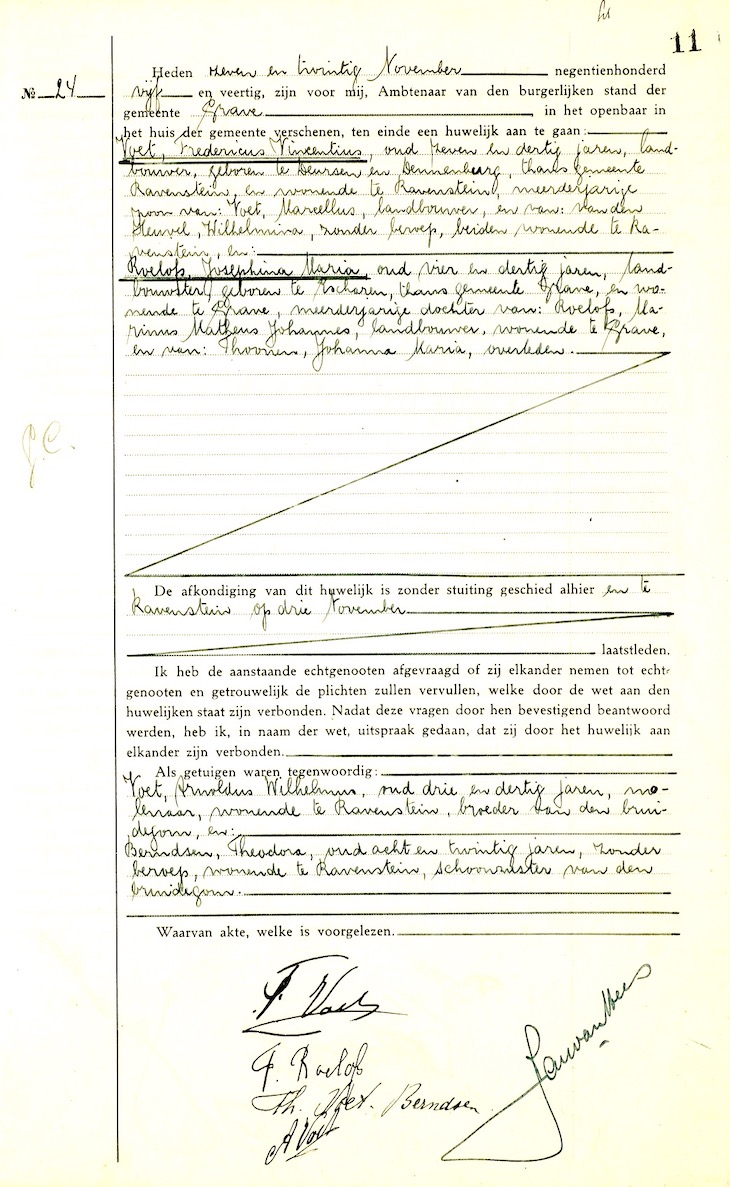 11
№ 24
Heden zeven en twintig November negentienhonderd
vijf en veertig, zijn voor mij, Ambtenaar van den burgerlijken stand der
gemeente Grave in het openbaar in
het huis der gemeente verschenen, ten einde een huwelijk aan te gaan:
Voet, Fredericus Vincentius, oud zeven en dertig jaren, land-
bouwer, geboren te Deursen en Dennenburg, thans gemeente
Ravenstein, en wonende te Ravenstein, meerderjarige
zoon van: Voet, Marcellus, landbouwer, en van: van den
Heuvel, Wilhelmina, zonder beroep, beiden wonende te Ra-
venstein, en:
Roelofs, Josephina Maria, oud vier en dertig jaren, land-
bouwster, geboren te Escharen, thans gemeente Grave, en wo-
nende te Grave, meerderjarige dochter van: Roelofs, Ma-
rinus Matheus Johannes, landbouwer, wonende te Grave,
en van: Thoonen, Johanna Maria, overleden.
J.C.
De afkondiging van dit huwelijk is zonder stuiting geschied alhier en te
Ravenstein op drie November
laatstleden.
Ik heb de aanstaande echtgenooten afgevraagd of zij elkander nemen tot echt-
genooten en getrouwelijk de plichten zullen vervullen, welke door de wet aan den
huwelijken staat zijn verbonden. Nadat deze vragen door hen bevestigend beantwoord
werden, heb ik, in naam der wet, uitspraak gedaan, dat zij door het huwelijk aan
elkander zijn verbonden.
Als getuigen waren tegenwoordig:
Voet, Arnoldus Wilhelmus, oud drie en dertig jaren, mo-
lenaar, wonende te Ravenstein, broeder van den brui-
degom, en:
Berndsen, Theodora, oud acht en twintig jaren, zonder
beroep, wonende te Ravenstein, schoonzuster van den
bruidegom.
Waarvan akte, welke is voorgelezen.
F. Voet
F. Roelofs
Th. Voet-Berndsen
A Voet